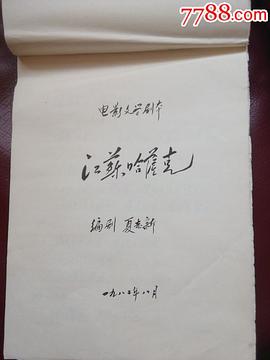 7788.com
电影文学剧本
江苏哈萨克
编剧 夏志新
一九八二年八月